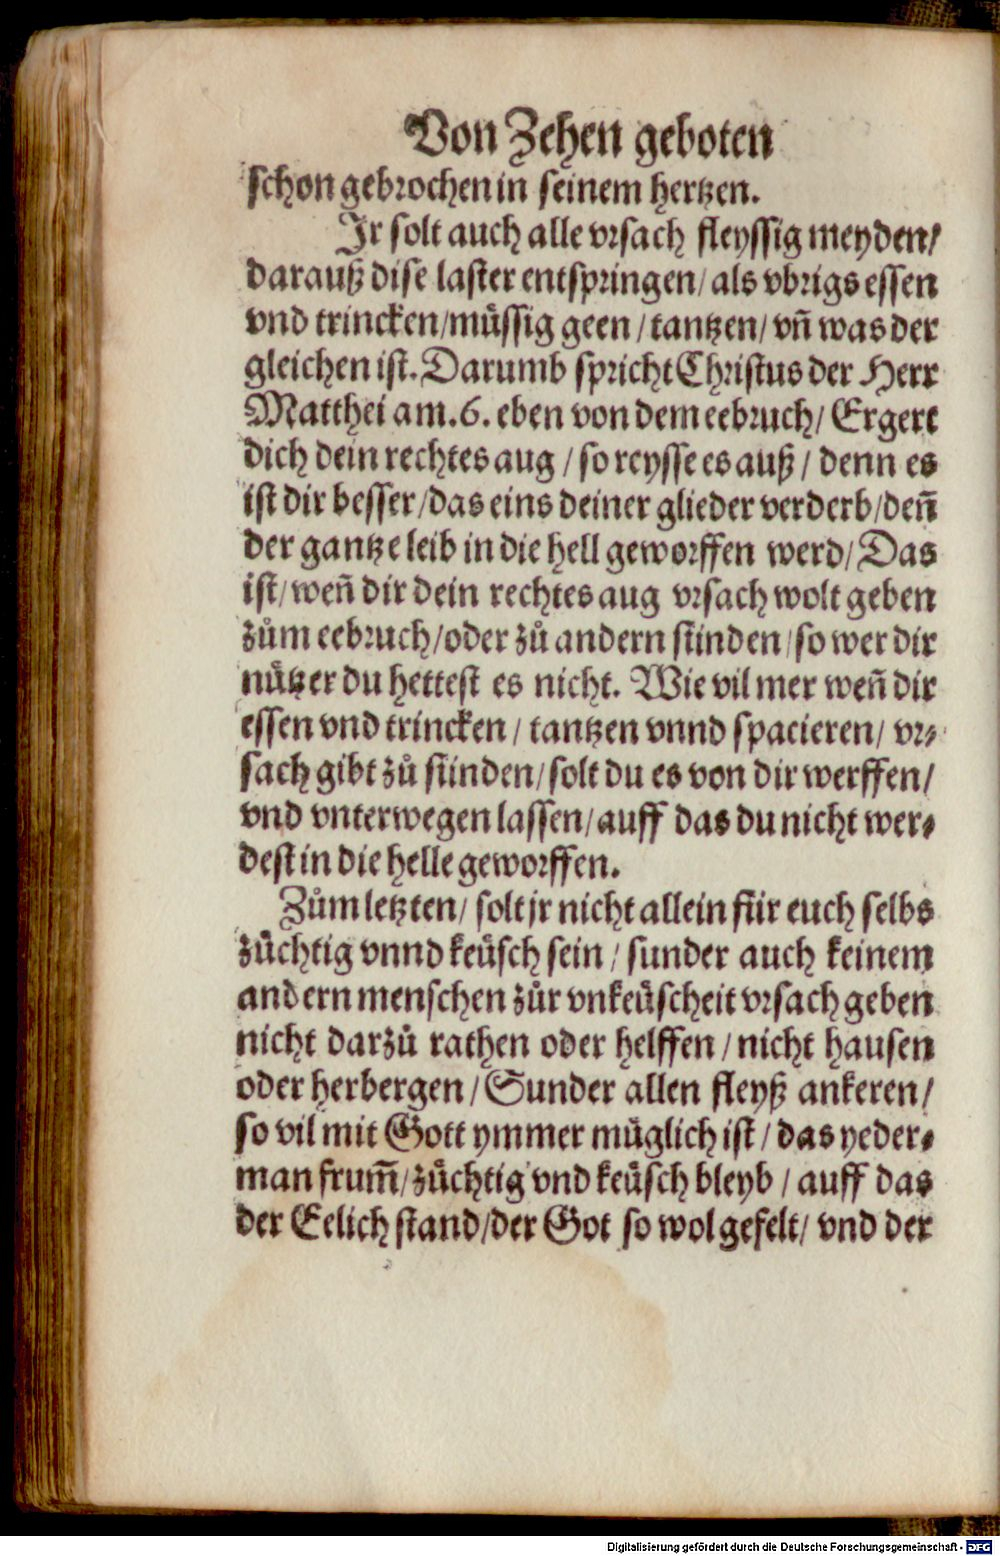 Von Zehen geboten
schon gebrochen in seinem hertzen.
Jr solt auch alle vrsach fleyssig meyden/
darauß dise laster entspringen/ als vbrigs essen
vnd trincken/müssig geen / tantzen/ vñ was der
gleichen ist. Darumb spricht Christus der Herr
Matthei am .6. eben von dem eebruch/ Ergert
dich dein rechtes aug / so reysse es auß / denn es
ist dir besser/das eins deiner glieder verderb/deñ
der gantze leib in die hell geworffen werd/ Das
ist/ weñ dir dein rechtes aug vrsach wolt geben
zům eebruch/oder zů andern sünden/so wer dir
nützer du hettest es nicht. Wie vil mer weñ dir
essen vnd trincken / tantzen vnnd spacieren/ vr⸗
sach gibt zů sünden/solt du es von dir werffen/
vnd vnterwegen lassen/auff das du nicht wer⸗
dest in die helle geworffen.
Zům letzten/ solt jr nicht allein für euch selbs
züchtig vnnd keüsch sein / sunder auch keinem
andern menschen zůr vnkeüscheit vrsach geben
nicht darzů rathen oder helffen / nicht hausen
oder herbergen / Sunder allen fleyß ankeren/
so vil mit Gott ymmer müglich ist / das yeder⸗
man frum̃/züchtig vnd keüsch bleyb / auff das
der Eelich stand/der Got so wol gefelt/ vnd der
Digitalisierung gefördert durch die Deutsche Forschungsgemeinschaft - DFG